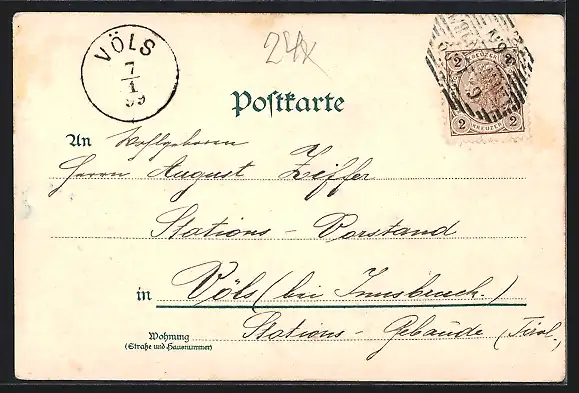 VÖLS
7
1
99
24x
2 2
KREUZER
2 2
KREUZER
Postkarte
An Wohlgeboren
Herrn August Zeiffer
Stations-Vorstand
in Völs (bei Innsbruck.)
Wohnung Stations-Gebäude (Tirol.)
(Straße und Hausnummer)